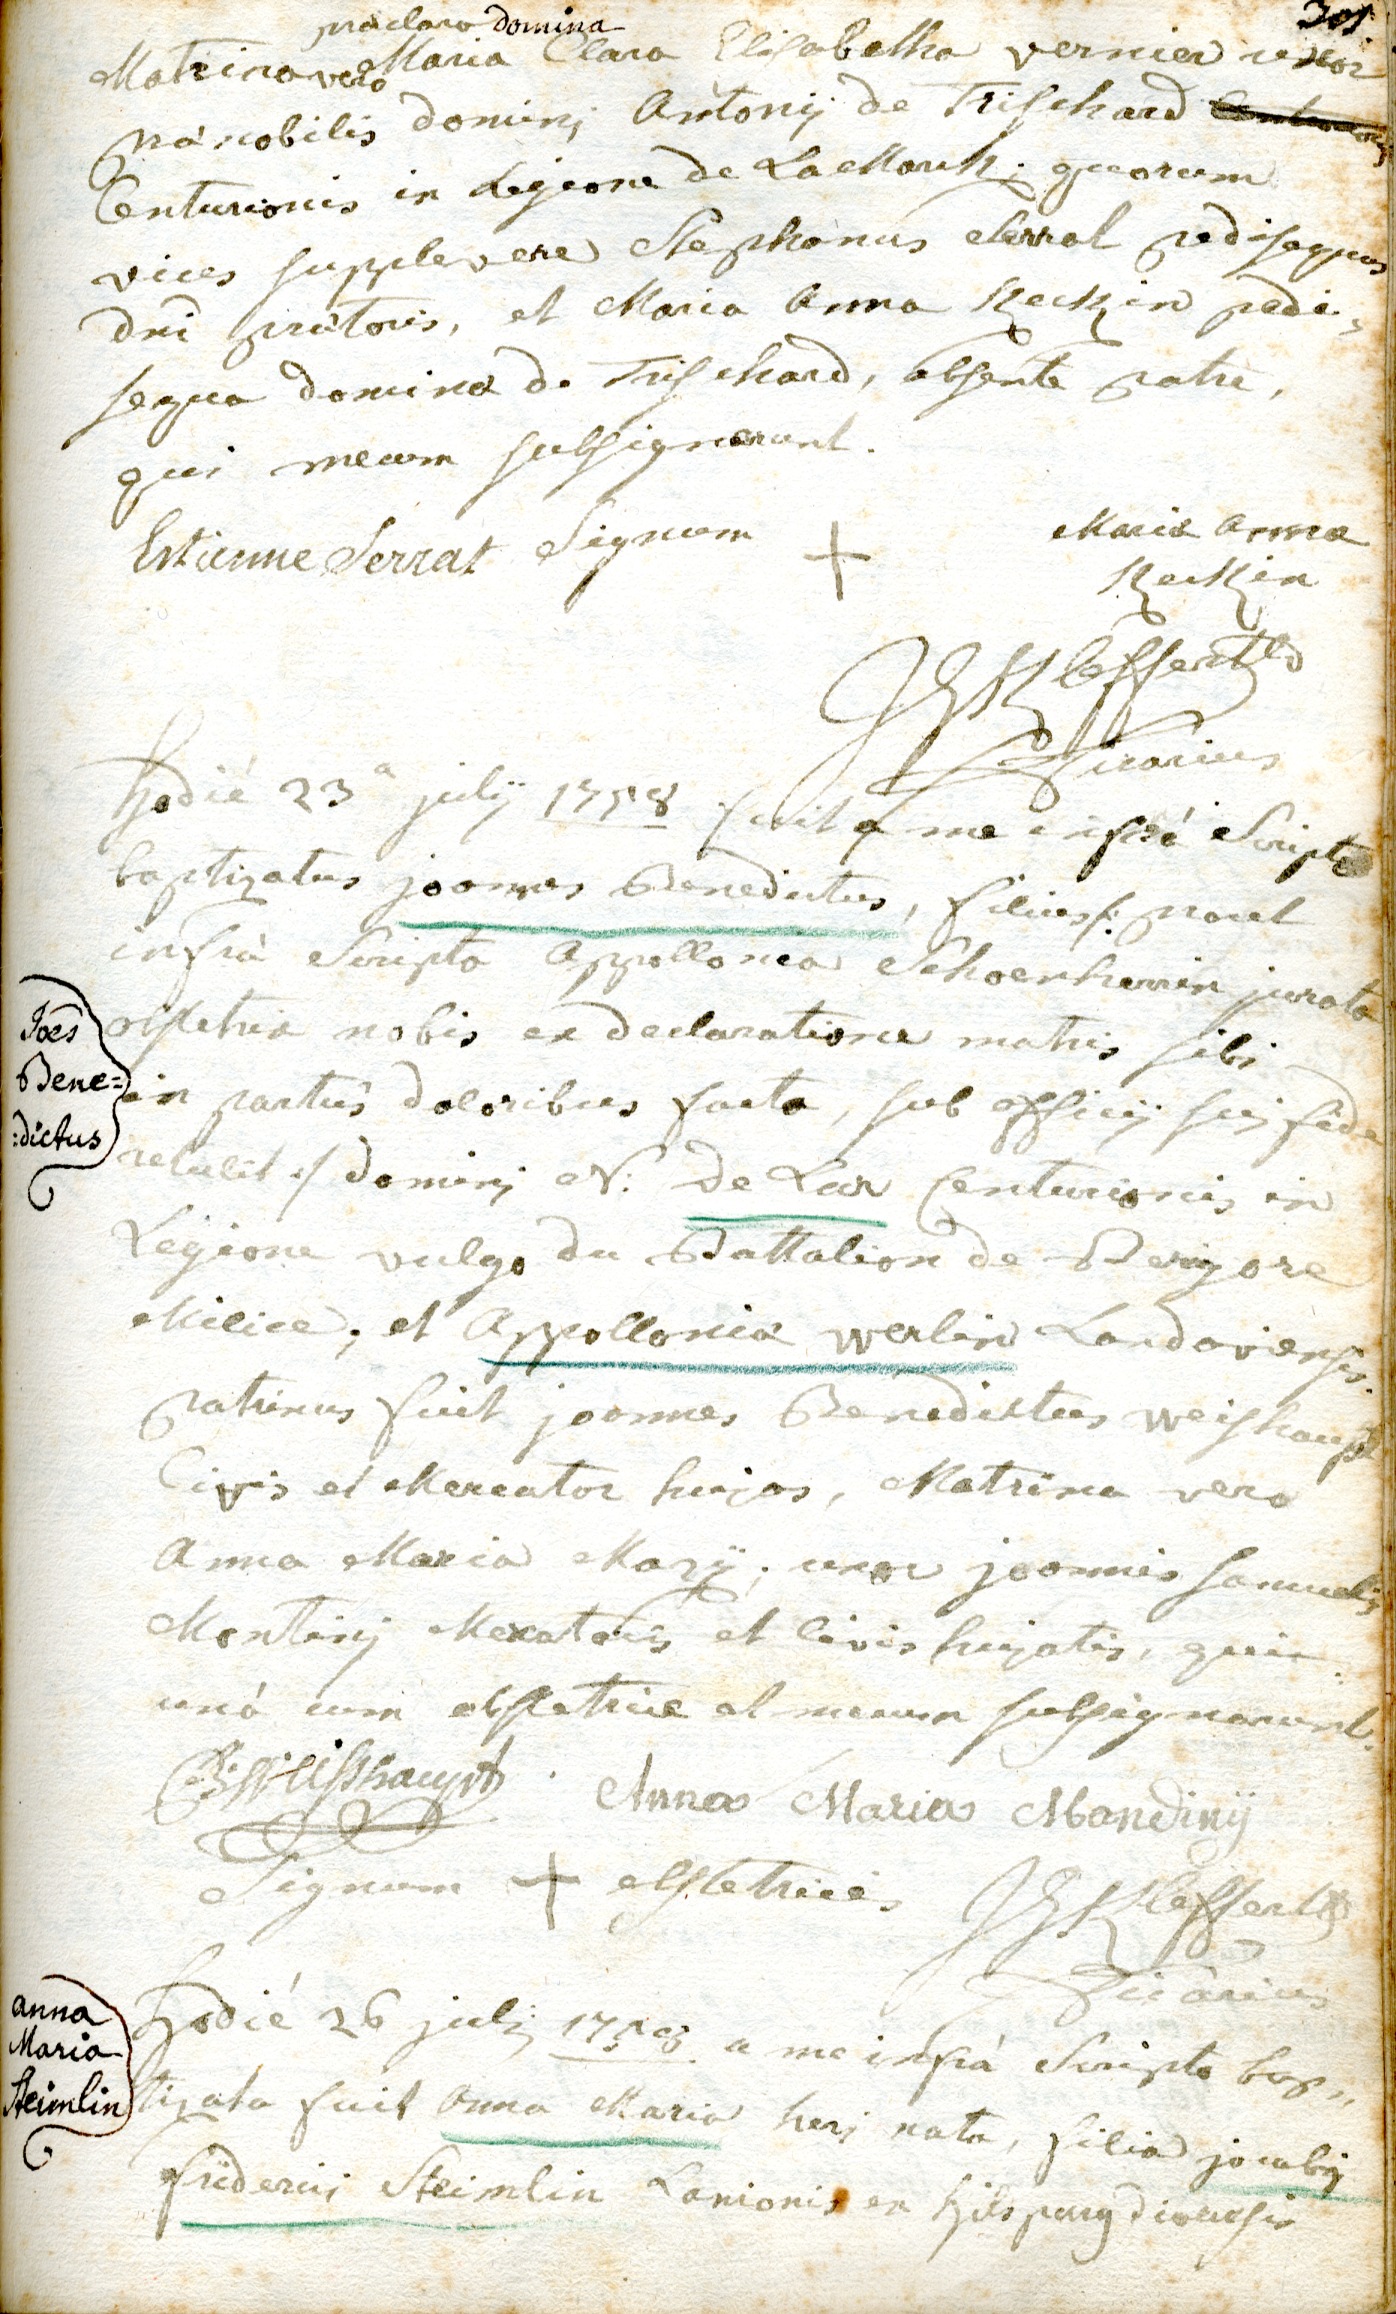 301.
præclara domina
Matrina vero Maria Clara Elisabetha vernier uxor
prænobilis dominj Antonij de Trischard
Centurionis in Legione de La Marck; quorum
vices supplevere Stephanus Serrat pedisequus
dni prætoris, et Maria Anna Keckin pedi-
sequa dominæ de Trischard, absente patre,
qui mecum subsignarunt.
Estienne Serrat Signum + Maria Anna
Keckin
JG Kleffert
Vicarius
Hodié 23a julij 1758 fuit a me infrá Scripto
baptizatus joannes Benedictus, filius /: prout
infrà Scripta Appollonia Schoenherrin jurata
obstetrix nobis ex declaratione matris sibi
in partûs doloribus facta, sub officij suj fide
retulit :/ dominj N: De Lar Centurionis in
Legione vulgo du Battalion de Perigore
Milice, et Appolloniæ werlin Landaviensis.
patrinus fuit joannes Benedictus weishaupt
Civis et Mercator hujas, Matrina vero
Anna Maria Mozÿ, uxor joannis samuelis
Montinj Mercatoris et Civis hujatis, qui
unà cum obstetrice et mecum subsignarunt.
B: Weisshaupt . Anna Maria Mandinÿ
Signum + obstetricis JG Kleffert
Vicarius
Joes
Bene=
=dictus
Hodié 26 julj 1758 a me infrá Scripto bap-
tizata fuit Anna Maria herj nata, filia jacobj
friderici Steimlin Lanionis ex Hilsparg diœcesis
anna
Maria
Steimlin